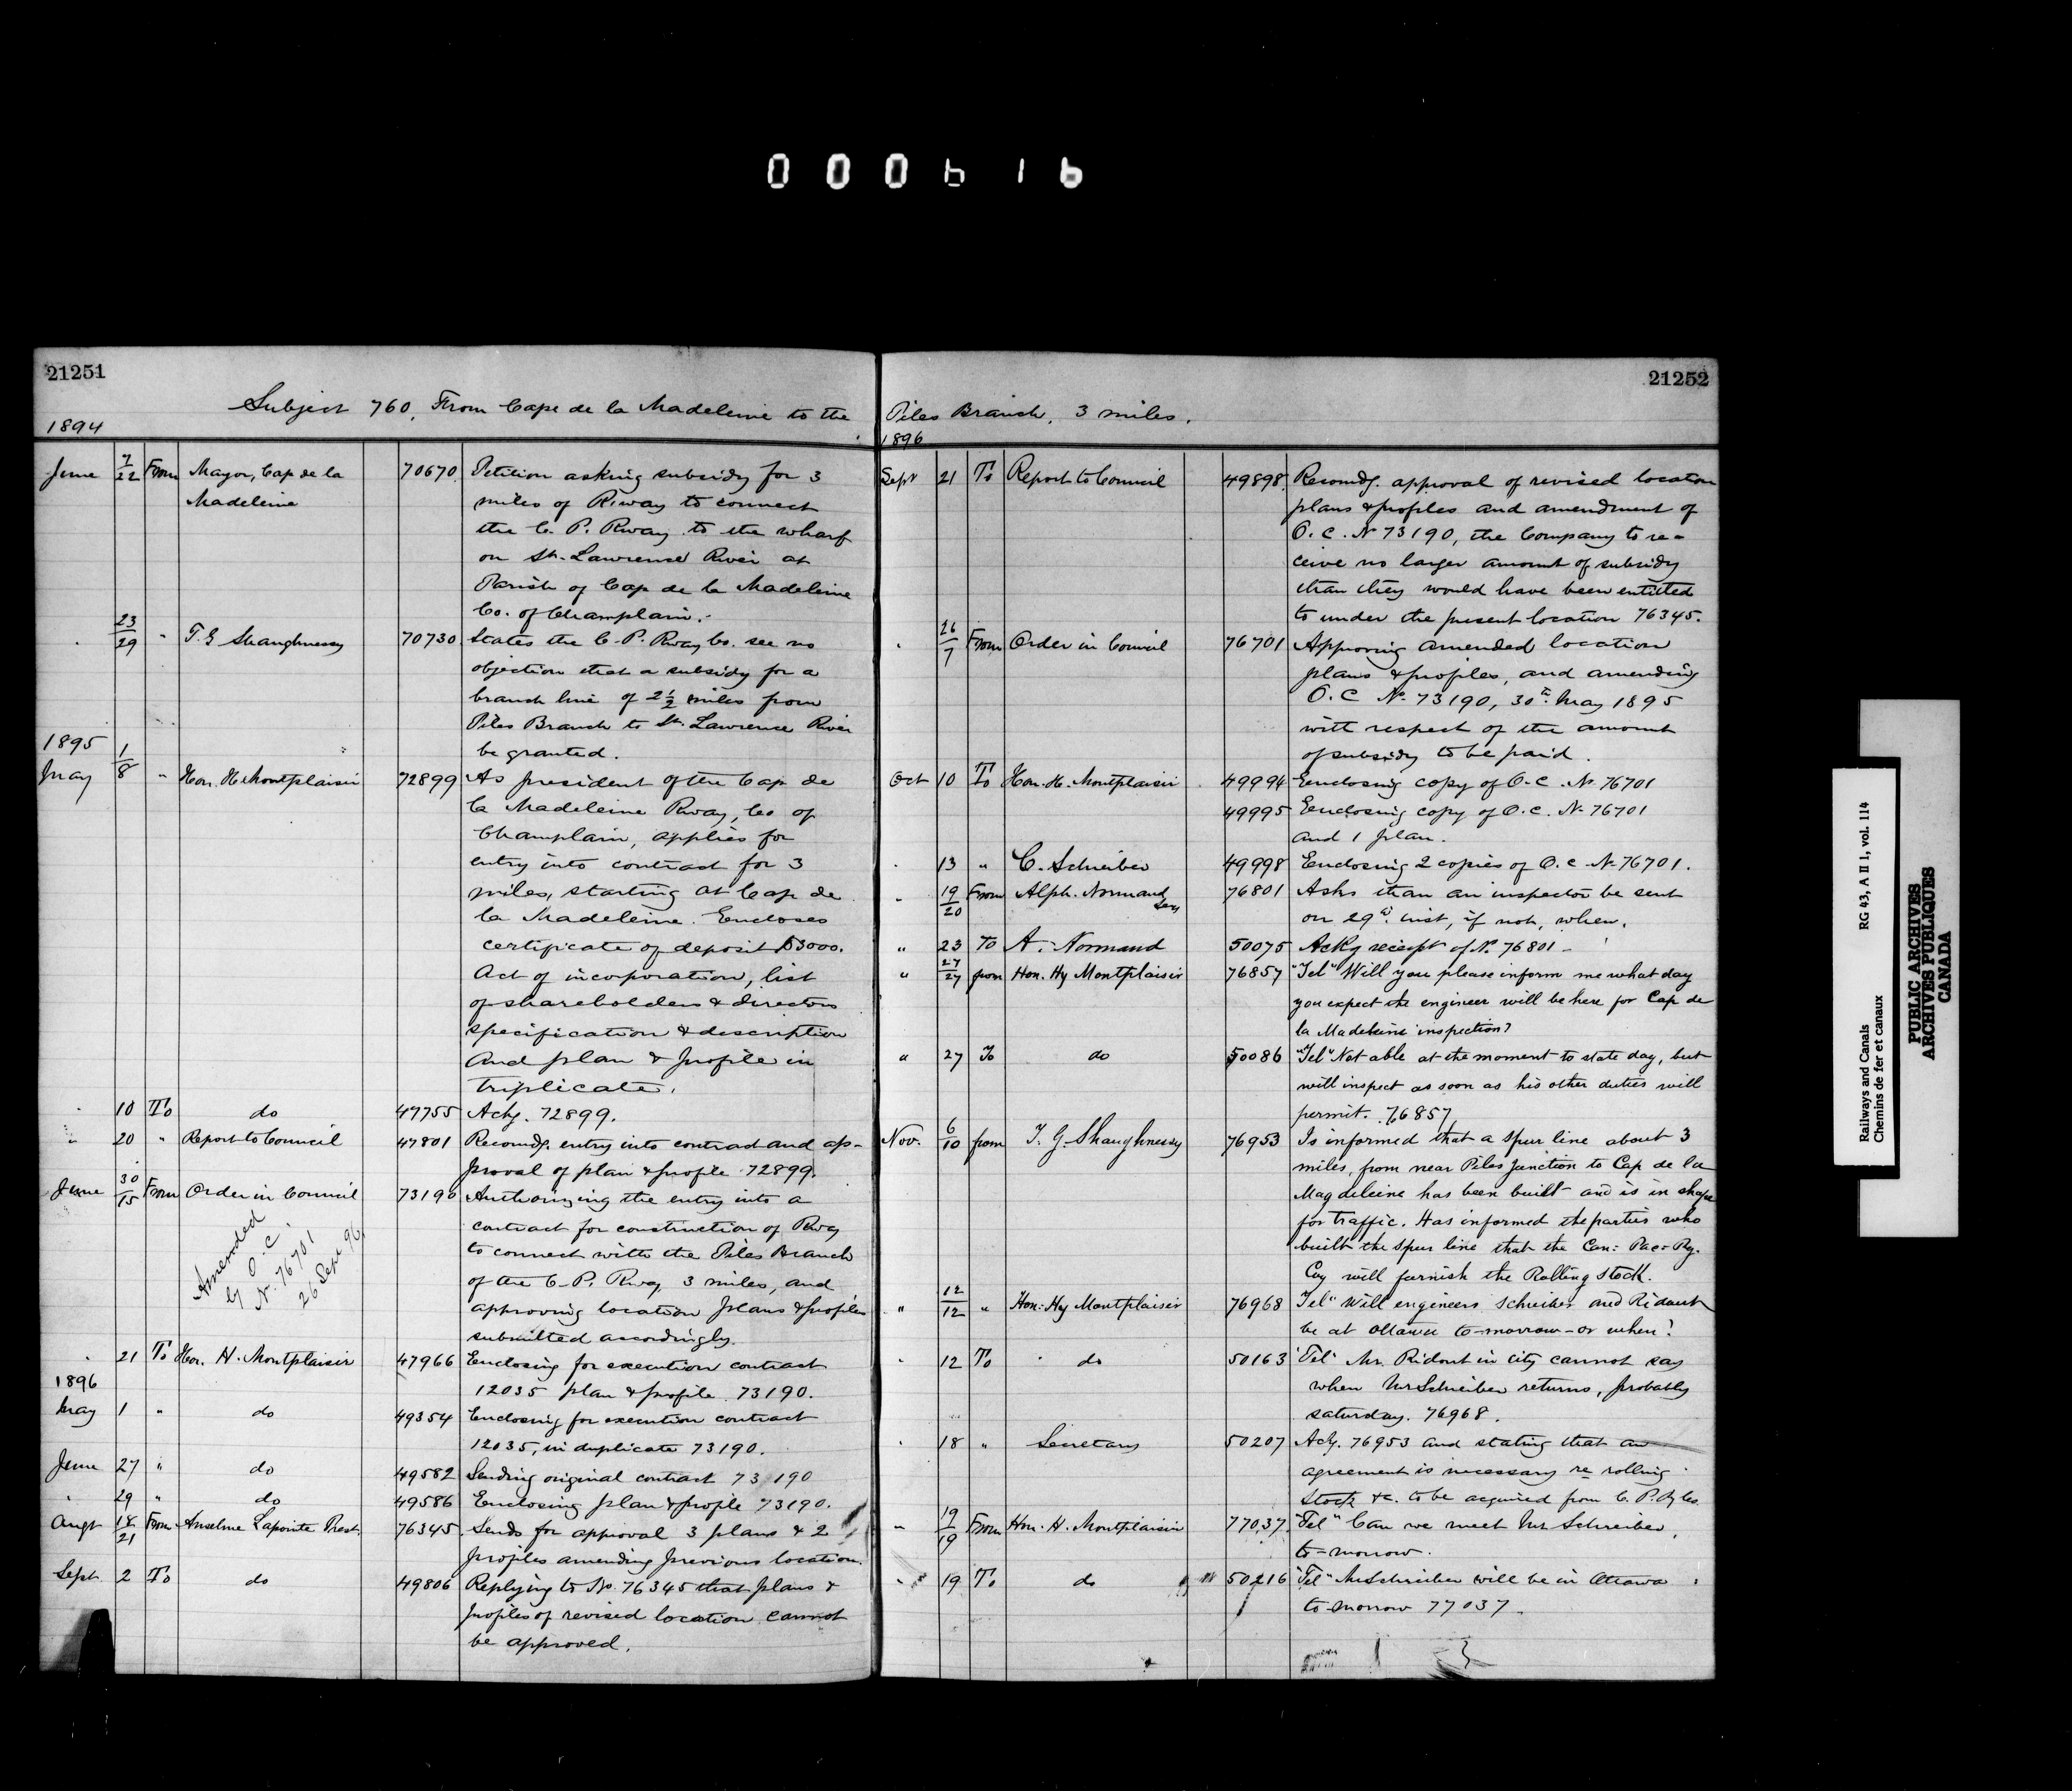 000616
21251
Subject 760. From Cape de la Madeleine to the
1894
June 7/22 From Mayor, Cap de la 70670. Petition asking subsidy for 3
Madeleine miles of R.way to connect
the C. P. Rway to the wharf
on St. Lawrence River at
Parish of Cap de la Madeleine
Co. of Champlain.
" 23/29 " T. G Shaughnessy 70730 States the C. P. Rway Co. see no
objection that a subsidy for a
branch line of 2½ miles from
Piles Branch to St. Lawrence River
be granted.
1895
May 1/8 " Hon. H Montplaisir 72899 As president of the Cap de
la Madeleine Rway, Co of
Champlain, applies for
entry into contract for 3
miles, starting at Cap de
la Madeleine. Encloses
certificate of deposit $3000.
Act of incorporation, list
of shareholders & directors
specification & description
and plan & profile in
triplicate.
" 10 To do 47755 Ackg. 72899.
" 20 " Report to Council 47801 Recomdg. entry into contract and ap-
proval of plan & profile 72899.
June 30/15 From Order in Council 73190 Authorizing the entry into a
contract for construction of Rwy
to connect with the Piles Branch
of the C. P. Rway, 3 miles, and
approving location plans & profiles
submitted accordingly.
Amended
by O. C.
No. 76701
26 Sept 96
" 21 To Hon. H. Montplaisir 47966 Enclosing for execution contract
12035 plan & profile 73190.
1896
May 1 " do 49354 Enclosing for execution contract
12035, in duplicate 73190.
June 27 " do 49582 Sending original contract 73190
" 29 " do 49586 Enclosing plan & profile 73190.
Augt 18/21 From Anselme Lapointe Prest. 76345 Sends for approval 3 plans & 2
profiles amending previous location.
Sept. 2 To do 49806 Replying to No. 76345 that plans &
profiles of revised location cannot
be approved.
21252
Piles Branch, 3 miles.
1896
Sept 21 To Report to Council 49898. Recomdg. approval of revised location
plans & profiles and amendment of
O. C. No 73190, the Company to re-
ceive no larger amount of subsidy
than they would have been entitled
to under the present location 76345.
" 26/7 From Order in Council 76701 Approving amended location
plans & profiles, and amending
O. C No. 73190, 30th. May 1895
with respect of the amount
of subsidy to be paid.
Oct 10 To Hon. H. Montplaisir 49994 Enclosing copy of O. C. No. 76701
49995 Enclosing copy of O. C. No. 76701
and 1 plan.
" 13 " C. Schreiber 49998 Enclosing 2 copies of O. C No. 76701.
" 19/20 From Alph. Normand Secy 76801 Asks than an inspector be sent
on 29th. inst, if not, when.
" 23 To A. Normand 50075 Ackg receipt of No. 76801 -
" 27/27 from Hon. Hy Montplaisir 76857 "Tel" Will you please inform me what day
you expect the engineer will be here for Cap de
la Madeleine inspection?
" 27 To do 50086 "Tel" Not able at the moment to state day, but
will inspect as soon as his other duties will
permit. 76857
Nov. 6/10 from T. G. Shaughnessy 76953 Is informed that a spur line about 3
miles, from near Piles Junction to Cap de la
Magdeleine has been built and is in shape
for traffic. Has informed the parties who
built the spur line that the Can: Pac: Ry.
Coy will furnish the Rolling Stock.
" 12/12 " Hon: Hy Montplaisir 76968 Tel" Will engineers Schreiber and Ridout
be at Ottawa to-morrow - or when?
" 12 To " do 50163 "Tel" Mr. Ridout in city cannot say
when Mr Schreiber returns, probably
saturday. 76968.
" 18 " Secretary 50207 Ackg. 76953 and stating that an
agreement is necessary re rolling
stock &c. to be acquired from C. P. Ry Co.
" 19/19 From Hon. H. Montplaisir 77037. "Tel" Can we meet Mr Schreiber,
to-morrow.
" 19 To do 50216 "Tel" Mr Schreiber will be in Ottawa
to-morrow 77037.
Railways and Canals RG 43, A II 1, vol. 114
Chemins de fer et canaux
PUBLIC ARCHIVES
ARCHIVES PUBLIQUES
CANADA